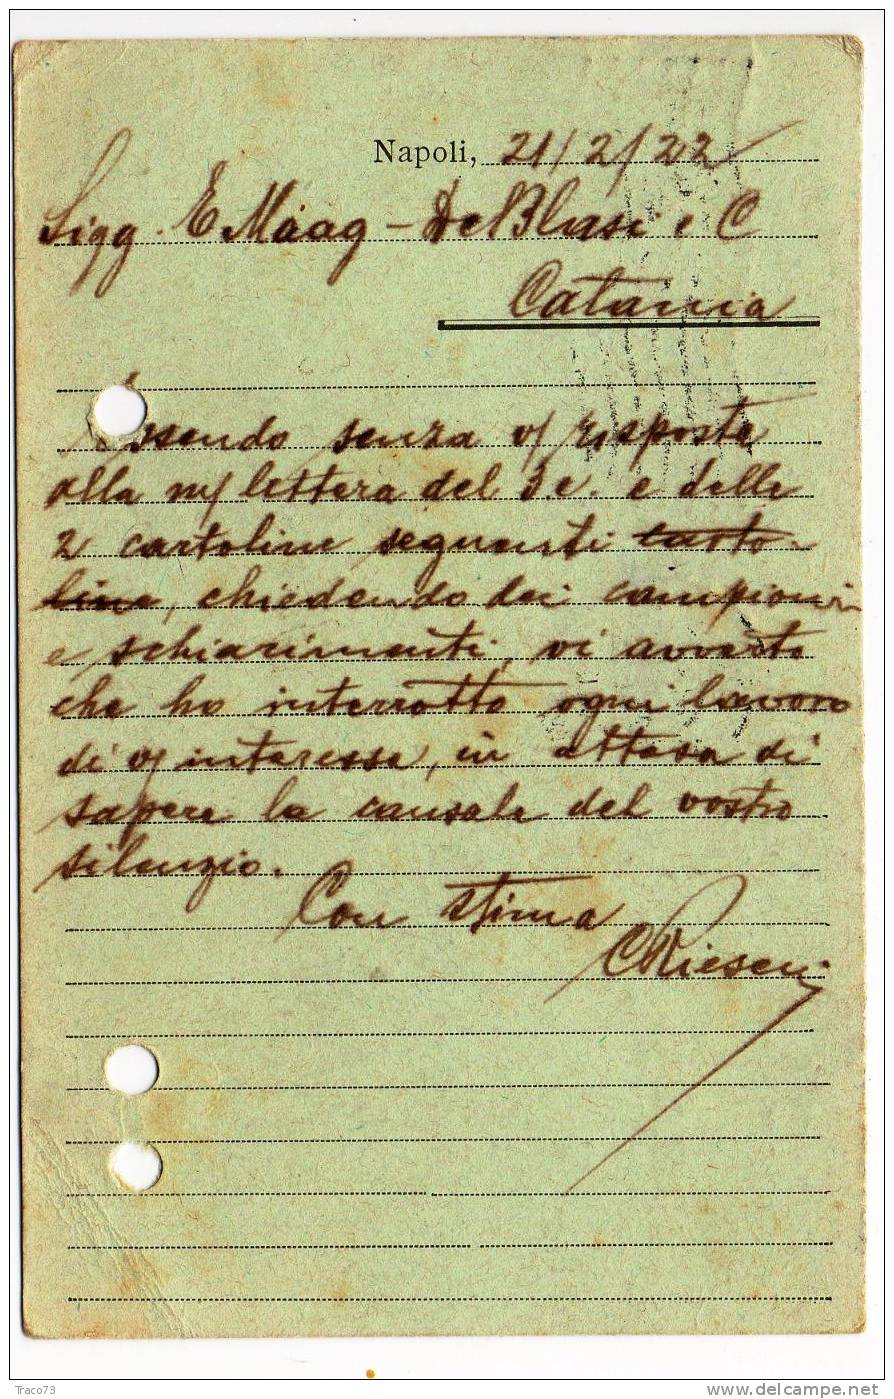 Napoli, 21/2/22
Sigg. E Maag - De Blasi e C
Catania
Essendo senza v/ risposta
alla m/ lettera del 3.c. e delle
2 cartoline seguenti carto-
line, chiedendo dei campioni
e schiarimenti, vi avverto
che ho interrotto ogni lavoro
di v/ interesse, in attesa di
sapere la causale del vostro
silenzio.
Con stima
Traco73
delcampe.net